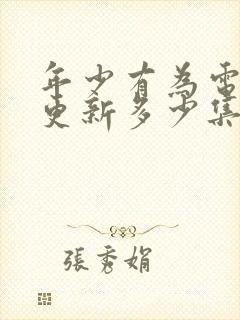 年少有為電
更新多少集
張秀娟